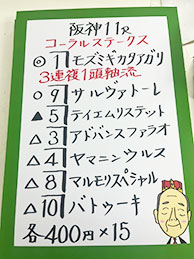 阪神11R
コーラルステークス
◎11モズミギカタアガリ
3連複1頭軸流
○9サルヴァトーレ
▲5テイエムリステット
△3アドバンスファラオ
△4ヤマニンウルス
△8マルモリスペシャル
△10バトゥーキ
各400円×15